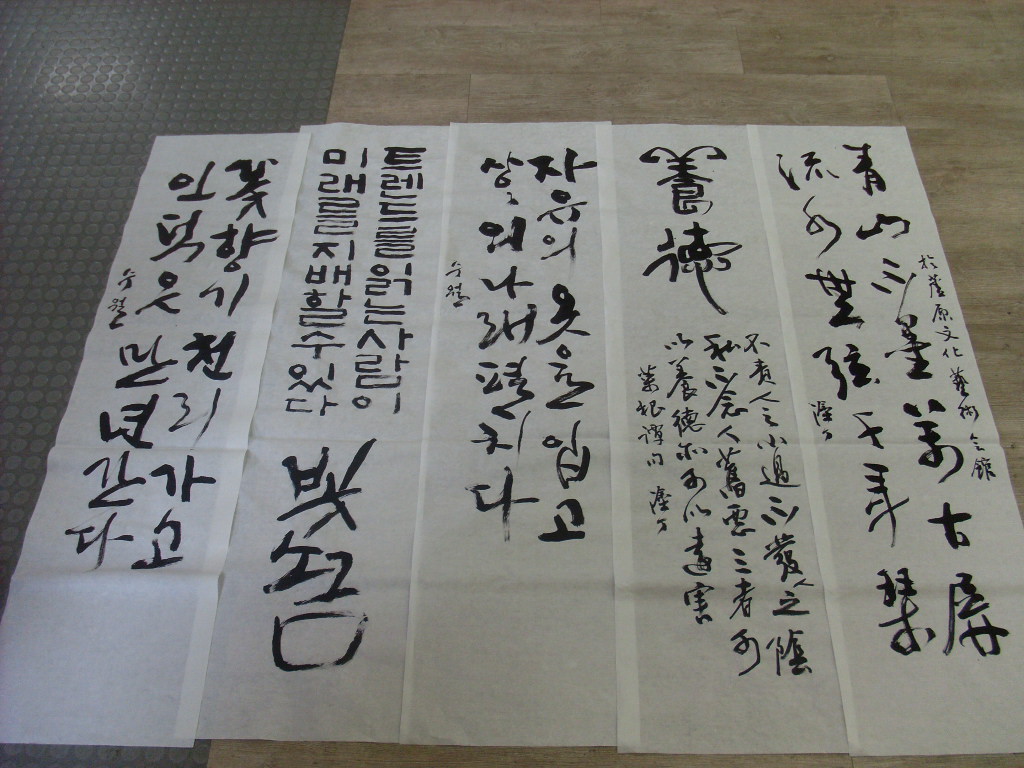 於 原文化藝術会館
青山不墨萬古屏
流水無弦千年琴
養德
不責人之小過不發人之陰
私不念人舊惡三者可
以養德亦可以遠害
菜根譚句
자유의 옷을 입고
상〻의 나래 펼치다
수월
트렌드를읽는사람이
미래를지배할수있다
꽃향기 천리 가고
인덕은 만년 간다
수월